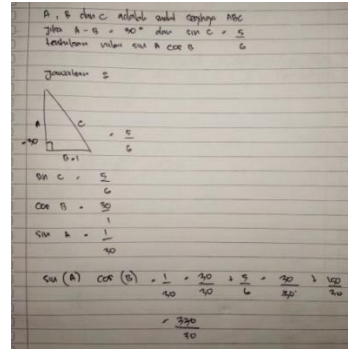 A, B dan C adalah sudut segitiga ABC
Jika A - B = 30° dan sin C = 5/6
Tentukan nilai sin A cos B
Jawaban :
A C
= 30
B = 1
= 5/6
Sin C = 5/6
Cos B = 30/1
Sin A = 1/30
Sin (A) cos (B) = 1/30 + 30/30 + 5/6 = 30/30 + 150/30
= 330/30